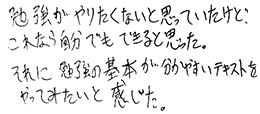 勉強がやりたくないと思っていたけど、
これなら自分でもできると思った。
それに勉強の基本が分かやすいテキストを
やってみたいと感じた。